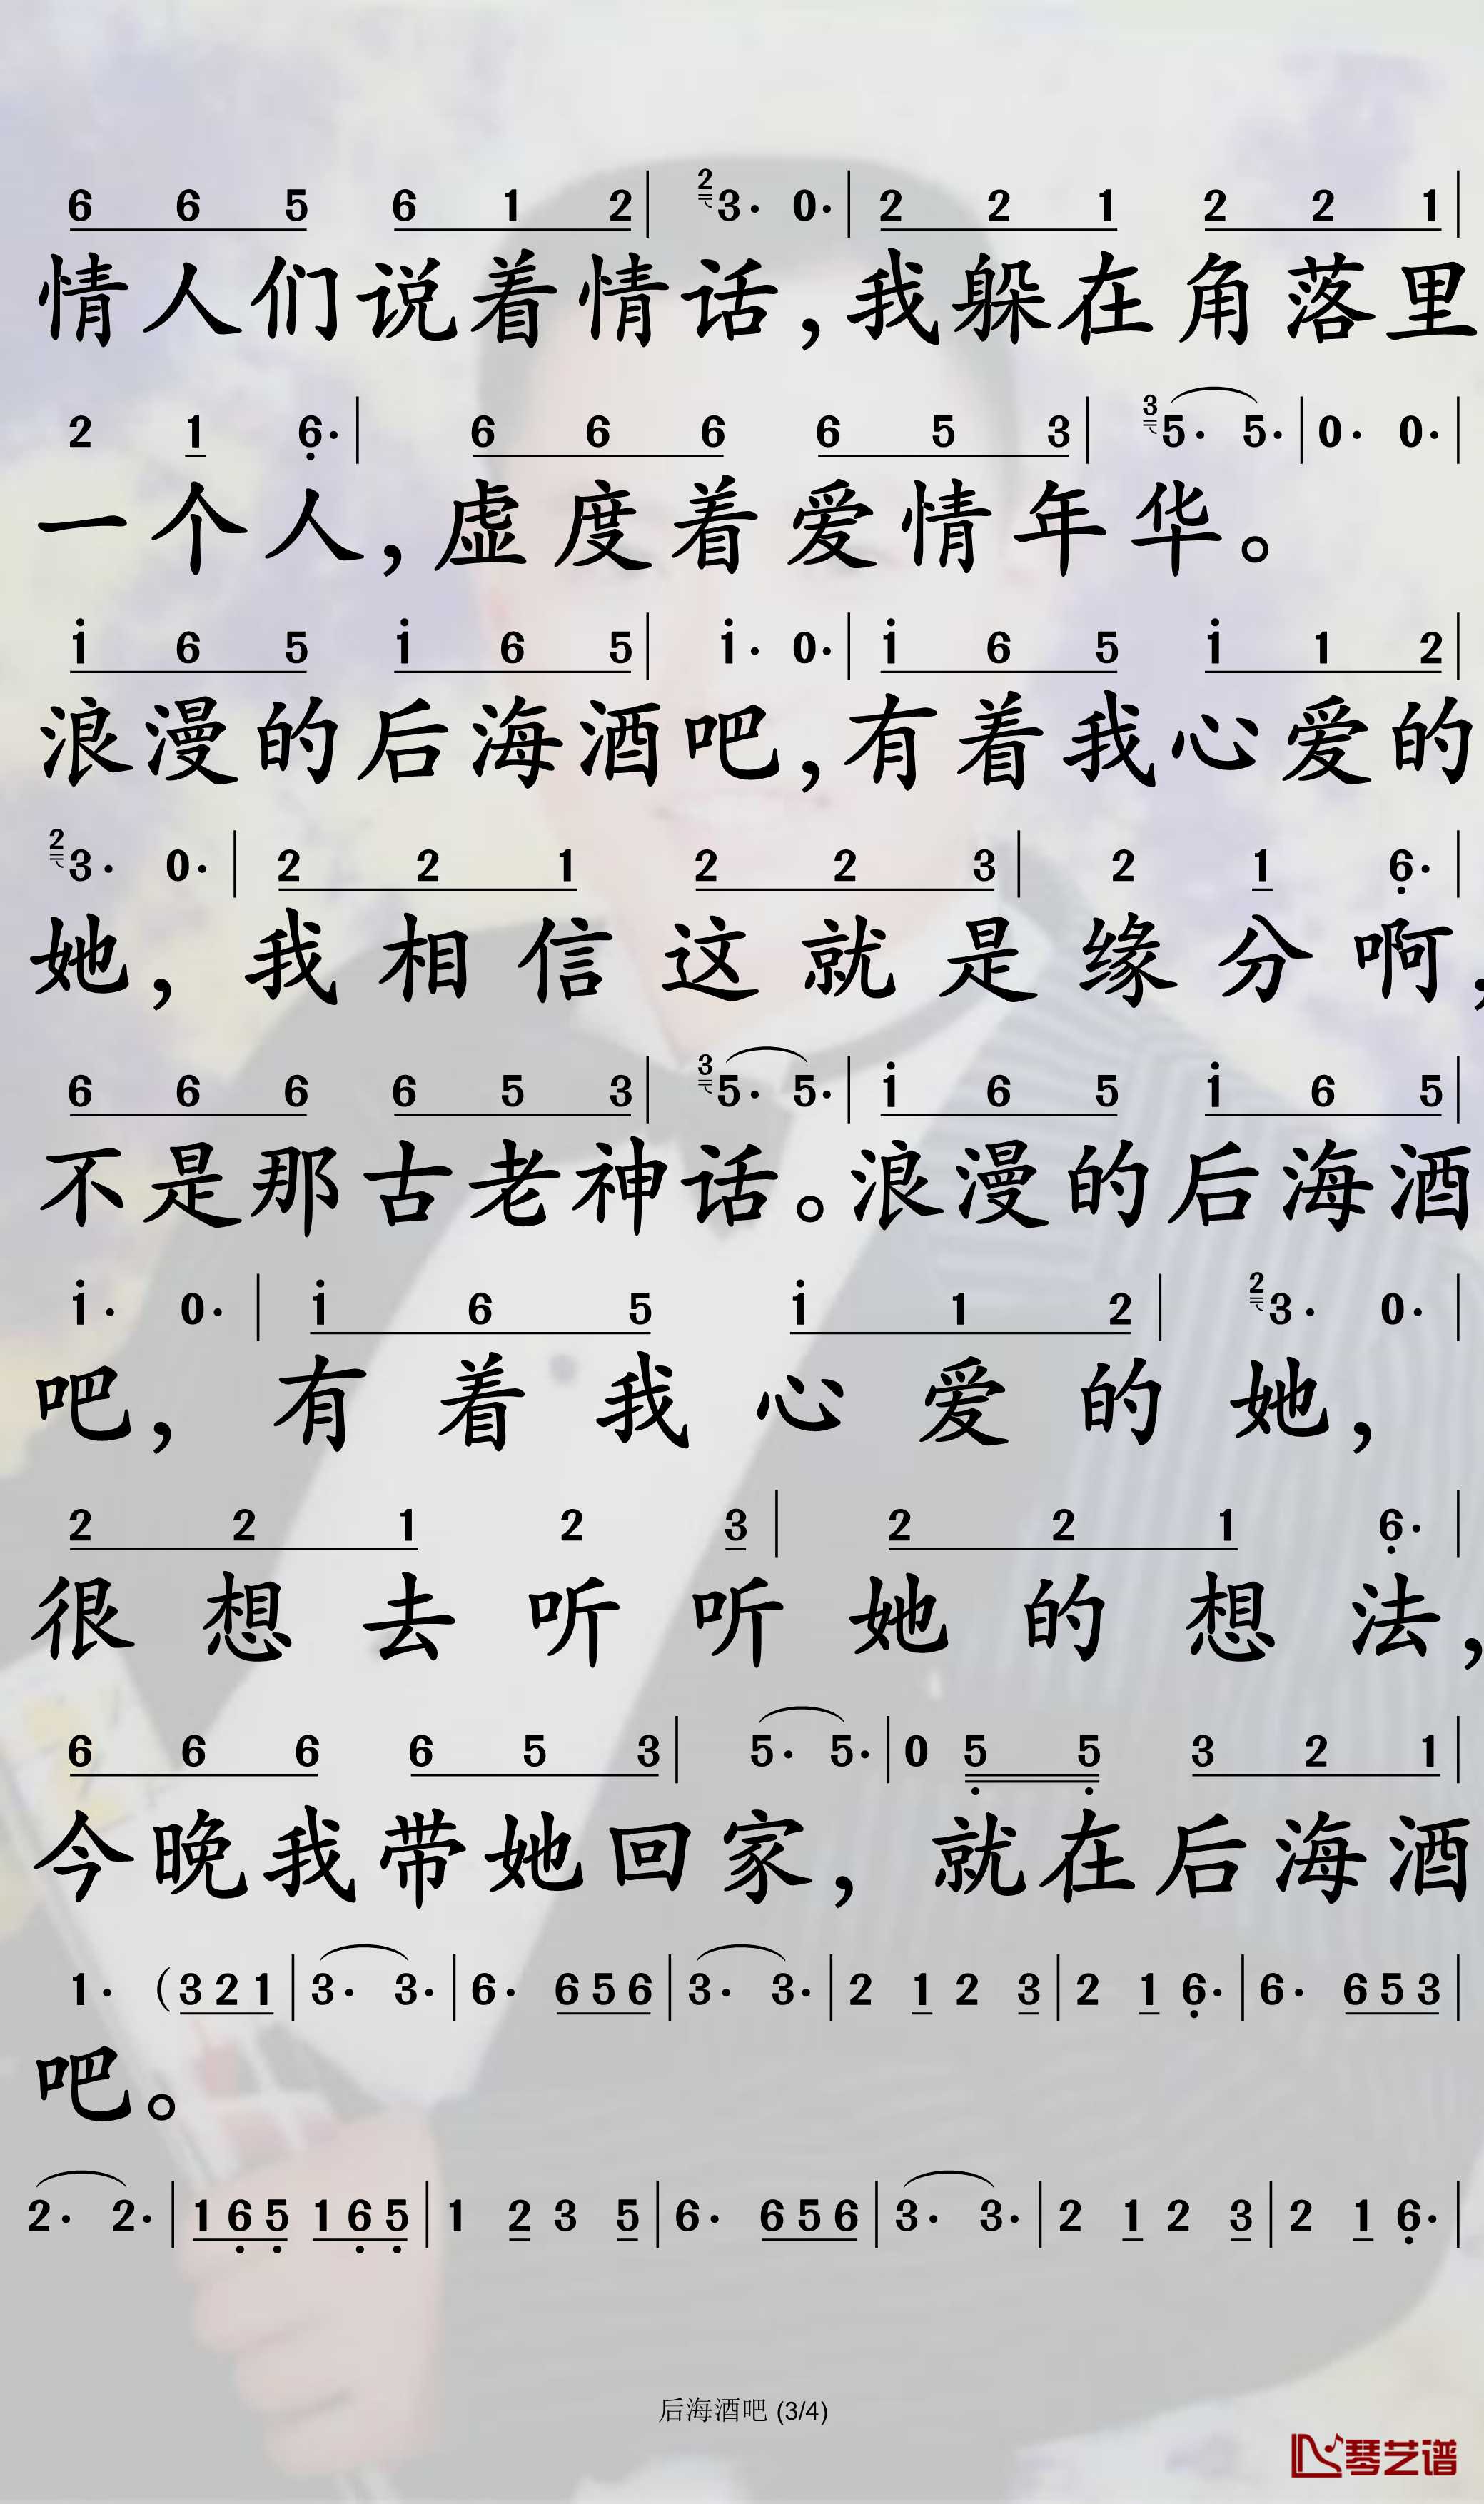 6 6 5 6 1 2 | 2 3· 0· | 2 2 1 2 2 1 |
情人们说着情话,我躲在角落里
2 1 6· | 6 6 6 6 5 3 | 3 5· 5· | 0· 0· |
一个人,虚度着爱情年华。
i 6 5 i 6 5 | i· 0· | i 6 5 i 1 2 |
浪漫的后海酒吧,有着我心爱的
2 3· 0· | 2 2 1 2 2 3 | 2 1 6· |
她,我相信这就是缘分啊,
6 6 6 6 5 3 | 3 5· 5· | i 6 5 i 6 5 |
不是那古老神话。浪漫的后海酒
i· 0· | i 6 5 i 1 2 | 2 3· 0· |
吧,有着我心爱的她,
2 2 1 2 3 | 2 2 1 6· |
很想去听听她的想法,
6 6 6 6 5 3 | 5· 5· | 0 5 5 3 2 1 |
今晚我带她回家,就在后海酒
1· (3 2 1 | 3· 3· | 6· 6 5 6 | 3· 3· | 2 1 2 3 | 2 1 6· | 6· 6 5 3 |
吧。
2· 2· | 1 6 5 1 6 5 | 1 2 3 5 | 6· 6 5 6 | 3· 3· | 2 1 2 3 | 2 1 6· |
后海酒吧 (3/4)
琴艺谱